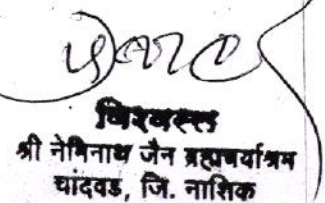 विश्वस्त
श्री नेमिनाथ जैन ब्रह्मचर्याश्रम
चांदवड, जि. नाशिक